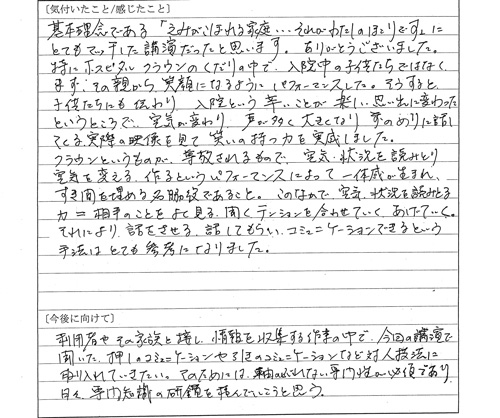 [気付いたこと/感じたこと]
基本理念である「えみがこぼれる家庭…それがわたしのほこりです」に
とてもマッチした講演だったと思います。ありがとうございました。
特にホスピタルクラウンのくだりの中で、入院中の子供たちではなく
まず、その親から笑顔になるようにパフォーマンスした。そうすると、
子供たちにも伝わり、入院という辛いことが楽しい思い出に変わった
というところで、空気が変わり、声が多く大きくなり、前のめりに話し
てくる実際の映像を見て笑いの持つ力を実感しました。
クラウンというものが、尊敬されるもので、空気、状況を読みとり
空気を変える、作るというパフォーマンスによって一体感が生まれ、
すき間を埋める名脇役であること。このなかで、空気、状況を読みとる
力=相手のことをよく見る、聞く、テンションを合わせていく、あげていく。
それにより、話をさせる、話してもらい、コミュニケーションできるという
手法はとても参考になりました。
[今後に向けて]
利用者やその家族と接し、情報を収集する作業の中で、今回の講演で
聞いた、押しのコミュニケーションや引きのコミュニケーションなど対人技法に
取り入れていきたい。そのためには、軸のぶれない専門性が必須であり
日々、専門知識の研鑽を積んでいこうと思う。